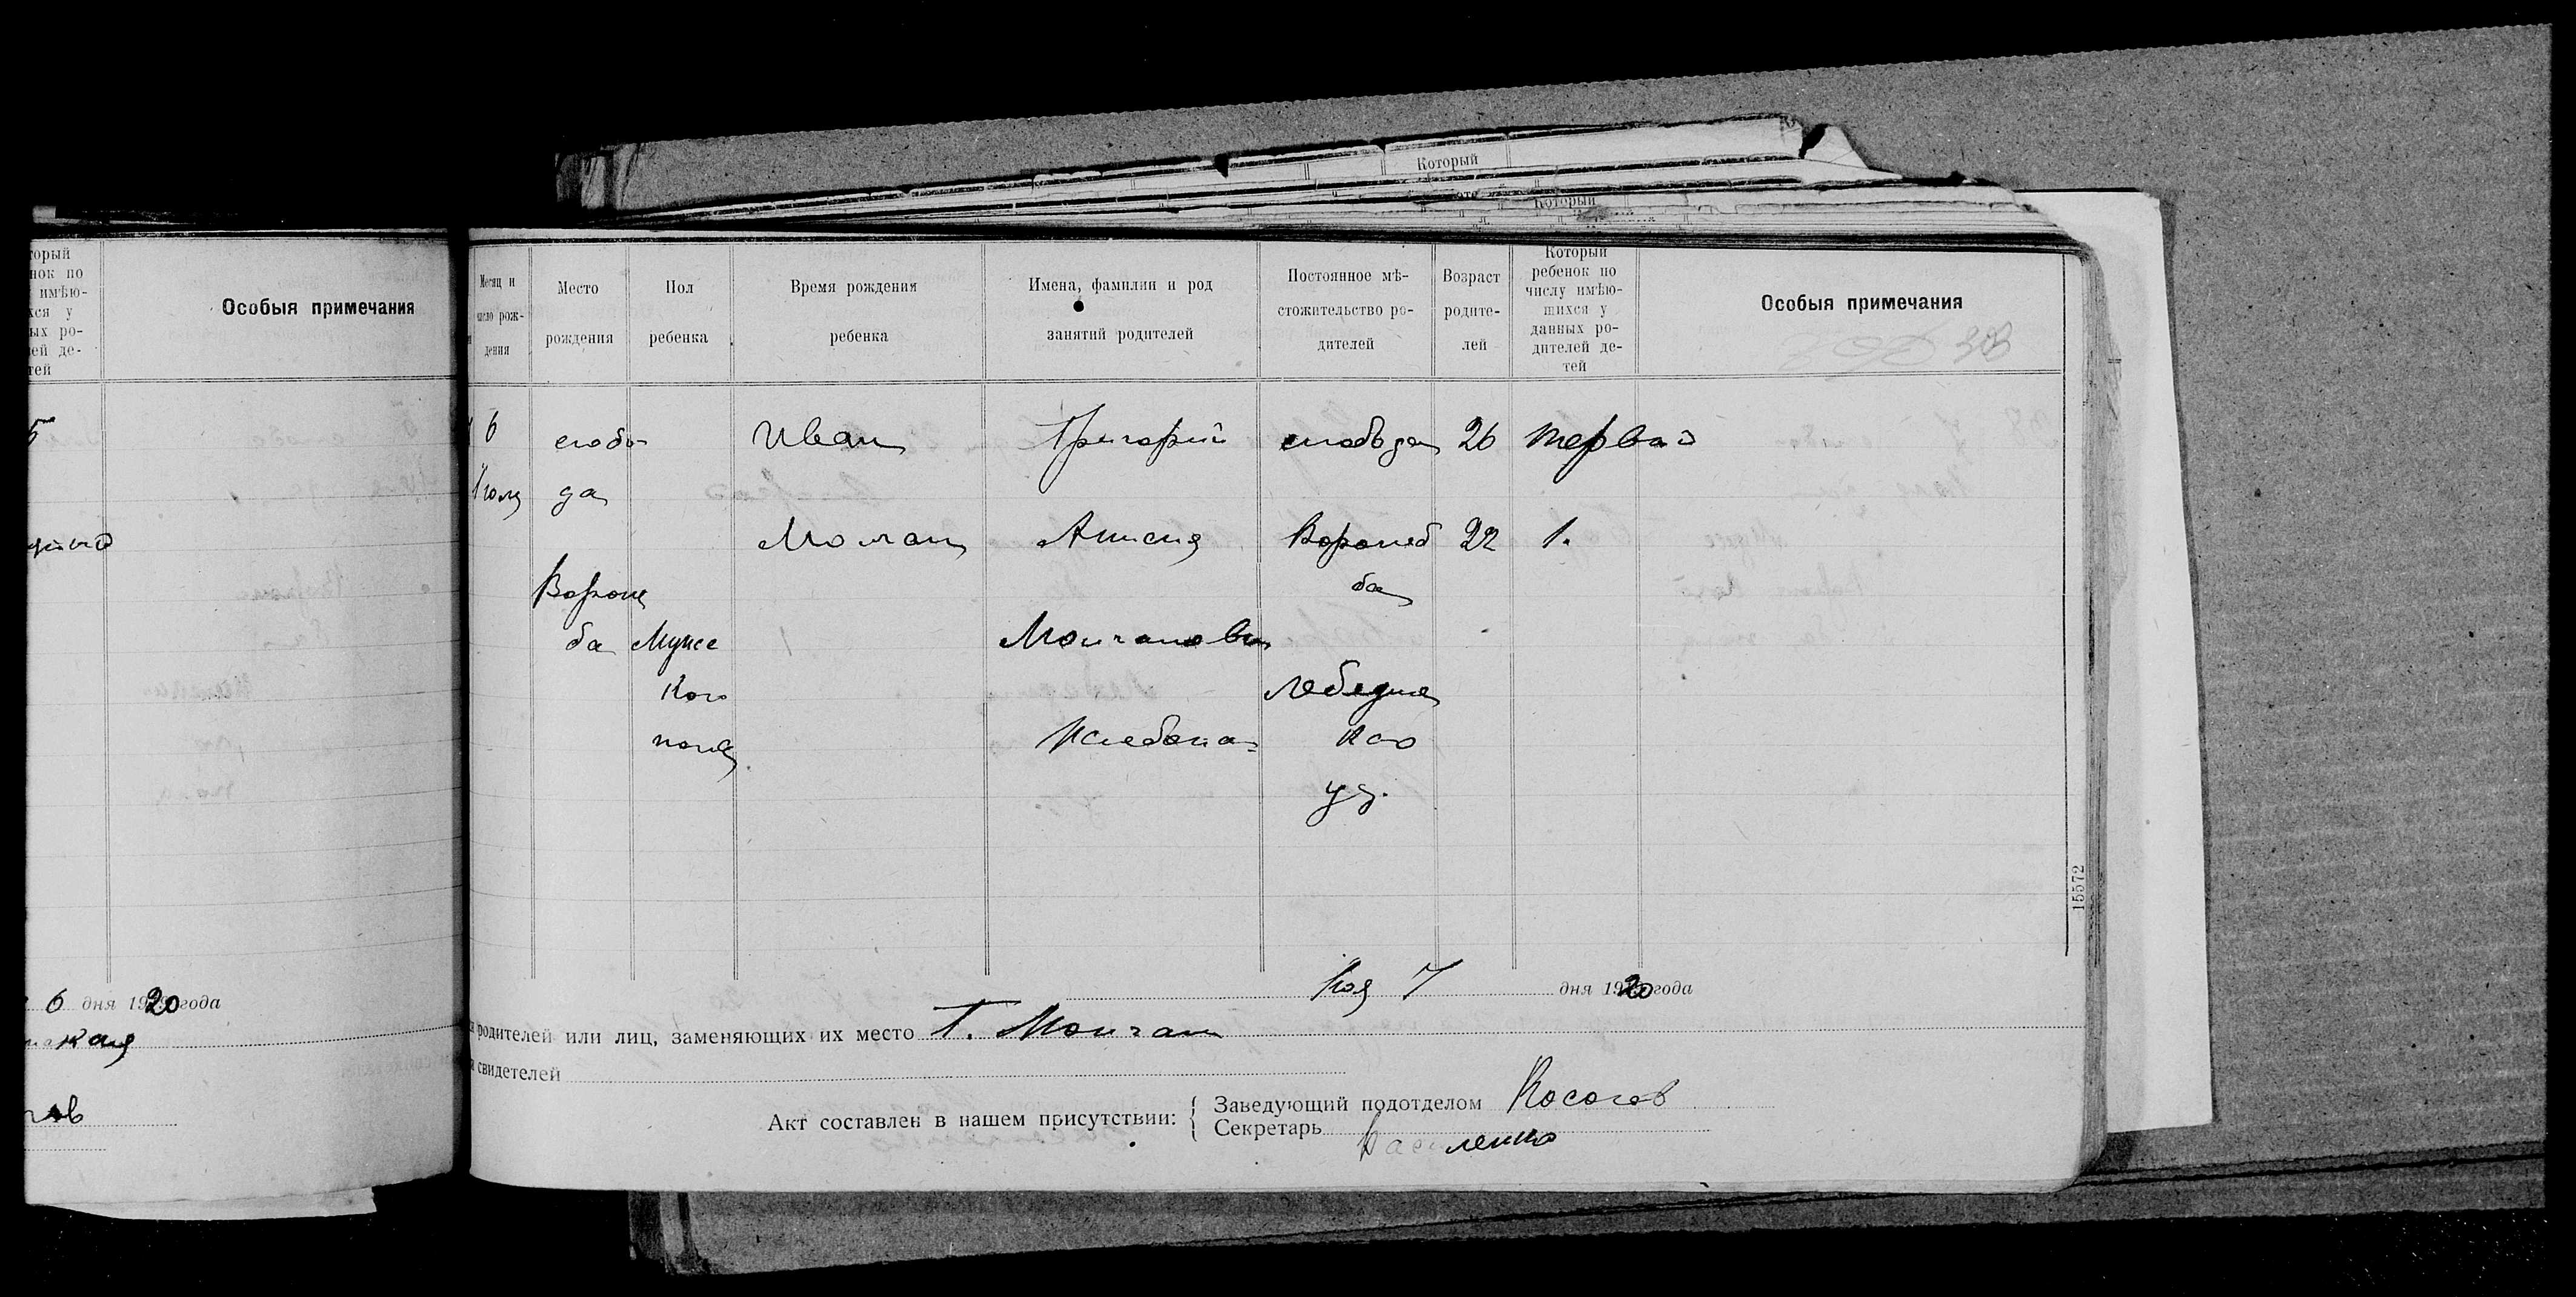 Который
Который
торый
нок по
имѣю-
хся у
ых ро-
лей де-
тей
Особыя примечания
5
6 дня 1920 года
Месяц и
число рож-
дения
Место
рождения
Пол
ребенка
Время рождения
ребенка
Имена, фамилии и род
занятий родителей
Постоянное мѣ-
стожительство ро-
дителей
Возраст
родите-
лей
Который
ребенок по
числу имѣю-
щихся у
данных ро-
дителей де-
тей
Особыя примечания
6
Июля
слобо-
да
Вороне
ба
Мужс
кого
пола
Иван
Молчан
Григорий
Анисия
Молчановы
Хлебопа=
слобода
Воронеб
ба
Лебедин
ско
уз.
26
22
первый
1.
15572
Июля 7 дня 1920 года
родителей или лиц, заменяющих их место Г. Молчан
свидетелей
Акт составлен в нашем присутствии:
Заведующий подотделом Косогов
Секретарь Василенко